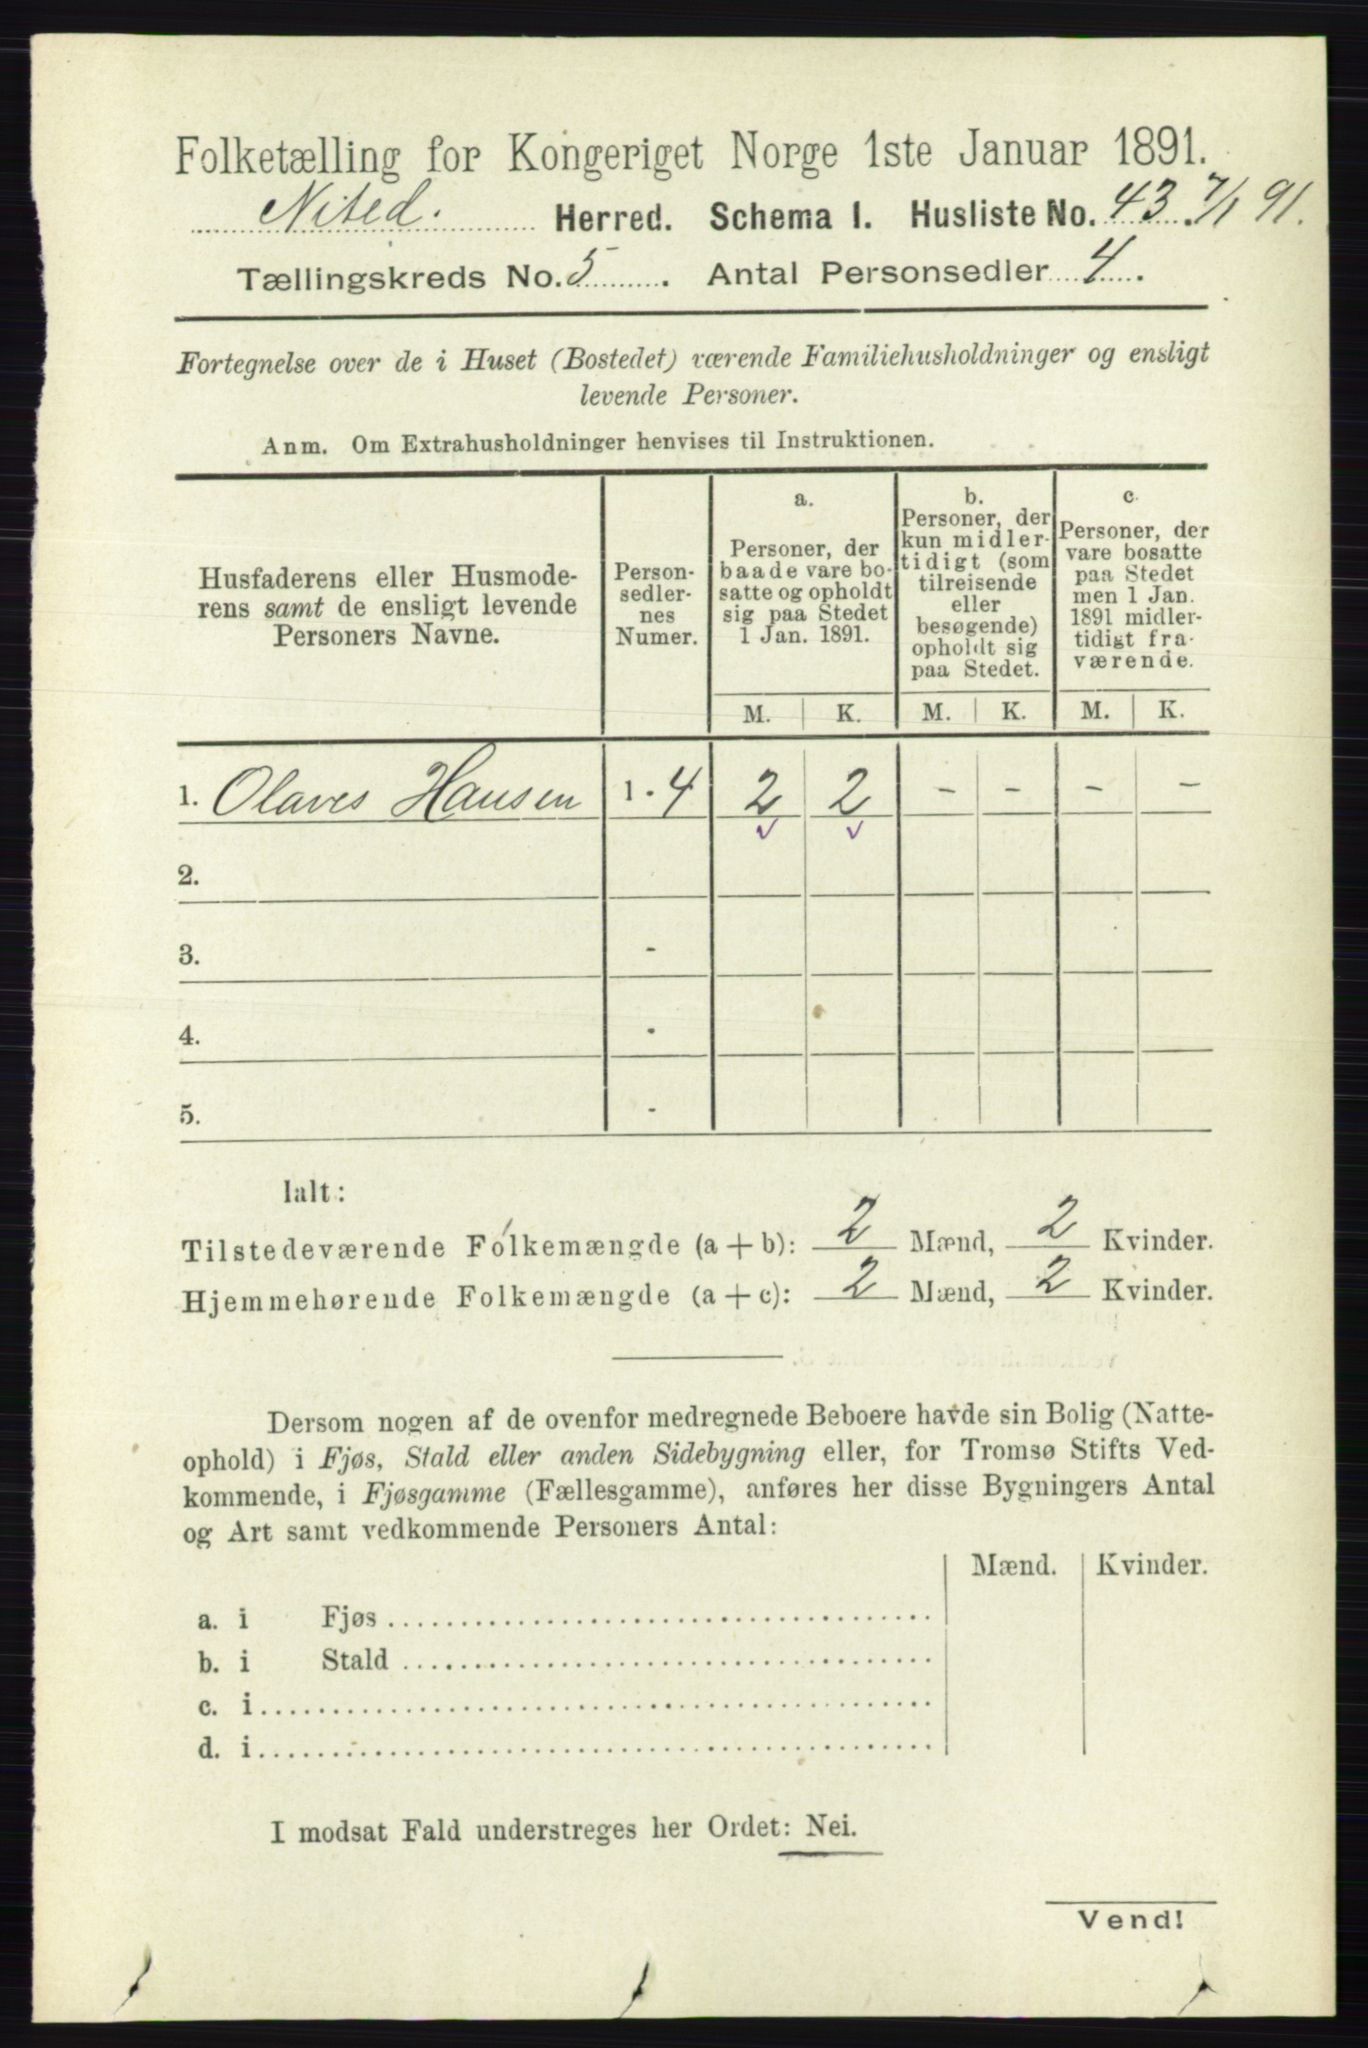 Folketælling for Kongeriget Norge 1ste Januar 1891.
Nited. Herred. Schema I. Husliste No. 43. 7/1 91.
Tællingskreds No. 5. Antal Personsedler 4.
Fortegnelse over de i Huset (Bostedet) værende Familiehusholdninger og ensligt
levende Personer.
Anm. Om Extrahusholdninger henvises til Instruktionen.
Husfaderens eller Husmode-
rens samt de ensligt levende
Personers Navne.
Person-
sedler-
nes
Numer.
a.
Personer, der
baade vare bo-
satte og opholdt
sig paa Stedet
1 Jan. 1891.
b.
Personer, der
kun midler-
tidigt (som
tilreisende
eller
besøgende)
opholdt sig
paa Stedet.
c.
Personer, der
vare bosatte
paa Stedet
men 1 Jan.
1891 midler-
tidigt fra-
værende.
M. K. M. K. M. K.
1. Olaves Hansen 1 - 4 2 2 - - - -
2.
3. -
4. -
5. -
Ialt:
Tilstedeværende Folkemængde (a + b): 2 Mænd, 2 Kvinder.
Hjemmehørende Folkemængde (a + c): 2 Mænd, 2 Kvinder.
Dersom nogen af de ovenfor medregnede Beboere havde sin Bolig (Natte-
ophold) i Fjøs, Stald eller anden Sidebygning eller, for Tromsø Stifts Ved-
kommende, i Fjøsgamme (Fællesgamme), anføres her disse Bygningers Antal
og Art samt vedkommende Personers Antal:
Mænd. Kvinder.
a. i Fjøs
b. i Stald
c. i
d. i
I modsat Fald understreges her Ordet: Nei.
Vend!